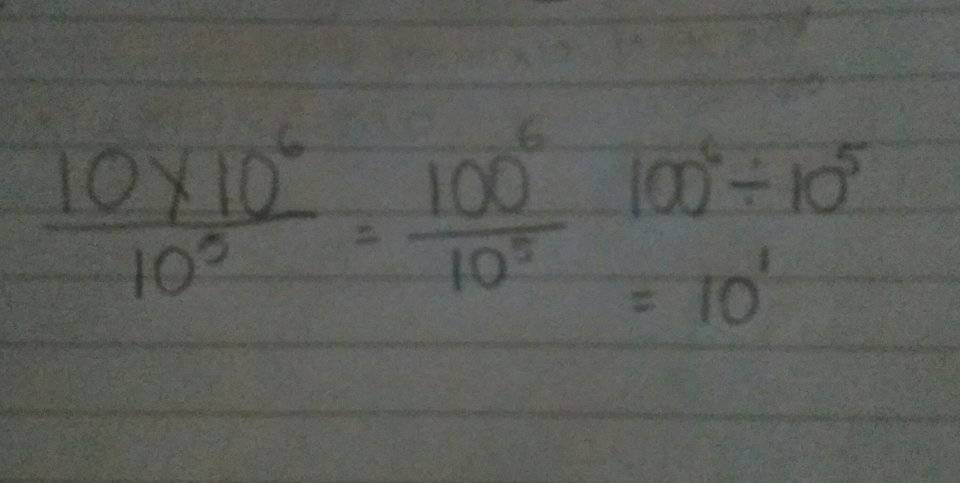 10 x 10⁶ / 10⁵ = 100⁶ / 10⁵
100⁶ ÷ 10⁵
= 10¹